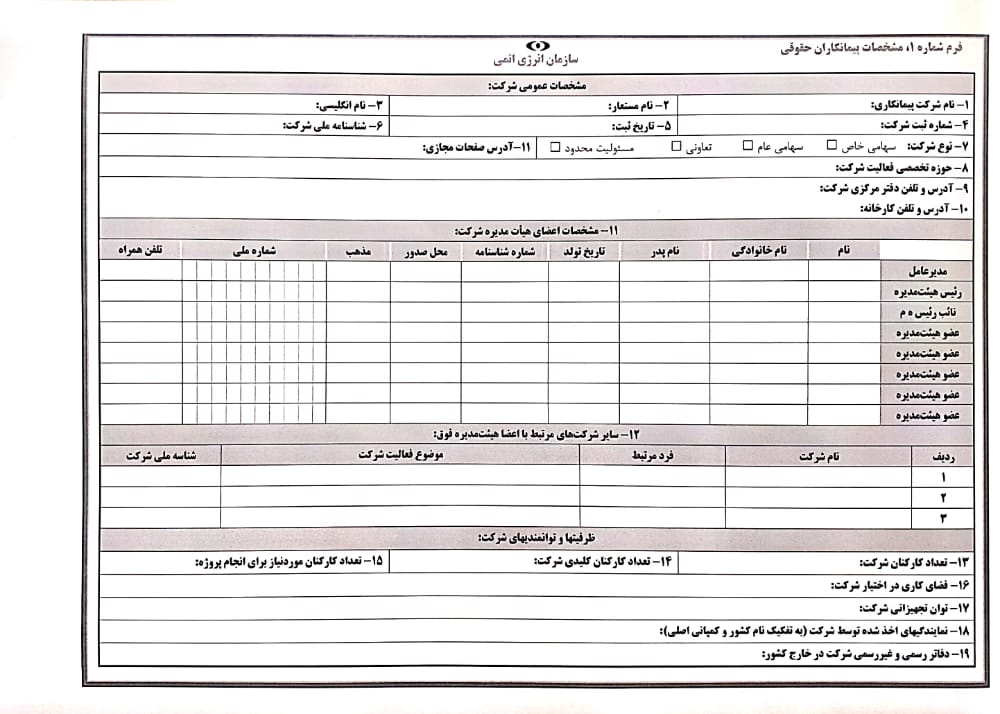 فرم شماره ۱، مشخصات پیمانکاران حقوقی
سازمان انرژی اتمی
مشخصات عمومی شرکت:
۱- نام شرکت پیمانکاری: ۲- نام مستعار: ۳- نام انگلیسی:
۴- شماره ثبت شرکت: ۵- تاریخ ثبت: ۶- شناسنامه ملی شرکت:
۷- نوع شرکت: سهامی خاص ☐ سهامی عام ☐ تعاونی ☐ مسئولیت محدود ☐ ۱۱- آدرس صفحات مجازی:
۸- حوزه تخصصی فعالیت شرکت:
۹- آدرس و تلفن دفتر مرکزی شرکت:
۱۰- آدرس و تلفن کارخانه:
۱۱- مشخصات اعضای هیأت مدیره شرکت:
نام نام خانوادگی نام پدر تاریخ تولد شماره شناسنامه محل صدور مذهب شماره ملی تلفن همراه
مدیرعامل
رئیس هیئت‌مدیره
نائب رئیس ه م
عضو هیئت‌مدیره
عضو هیئت‌مدیره
عضو هیئت‌مدیره
عضو هیئت‌مدیره
عضو هیئت‌مدیره
۱۲- سایر شرکت‌های مرتبط با اعضا هیئت‌مدیره فوق:
ردیف نام شرکت فرد مرتبط موضوع فعالیت شرکت شناسه ملی شرکت
۱
۲
۳
ظرفیتها و توانمندیهای شرکت:
۱۳- تعداد کارکنان شرکت: ۱۴- تعداد کارکنان کلیدی شرکت: ۱۵- تعداد کارکنان موردنیاز برای انجام پروژه:
۱۶- فضای کاری در اختیار شرکت:
۱۷- توان تجهیزاتی شرکت:
۱۸- نمایندگیهای اخذ شده توسط شرکت (به تفکیک نام کشور و کمپانی اصلی):
۱۹- دفاتر رسمی و غیررسمی شرکت در خارج کشور: